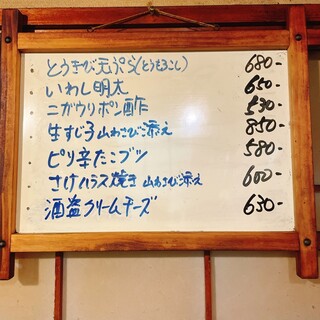 とうきび天ぷら(とうもろこし) 680-
いわし明太 650-
ニガウリポン酢 530-
生すじ子山わさび添え 850-
ピリ辛たこブツ 580-
さけハラス焼き 山わさび添え 600-
酒盗クリームチーズ 630-